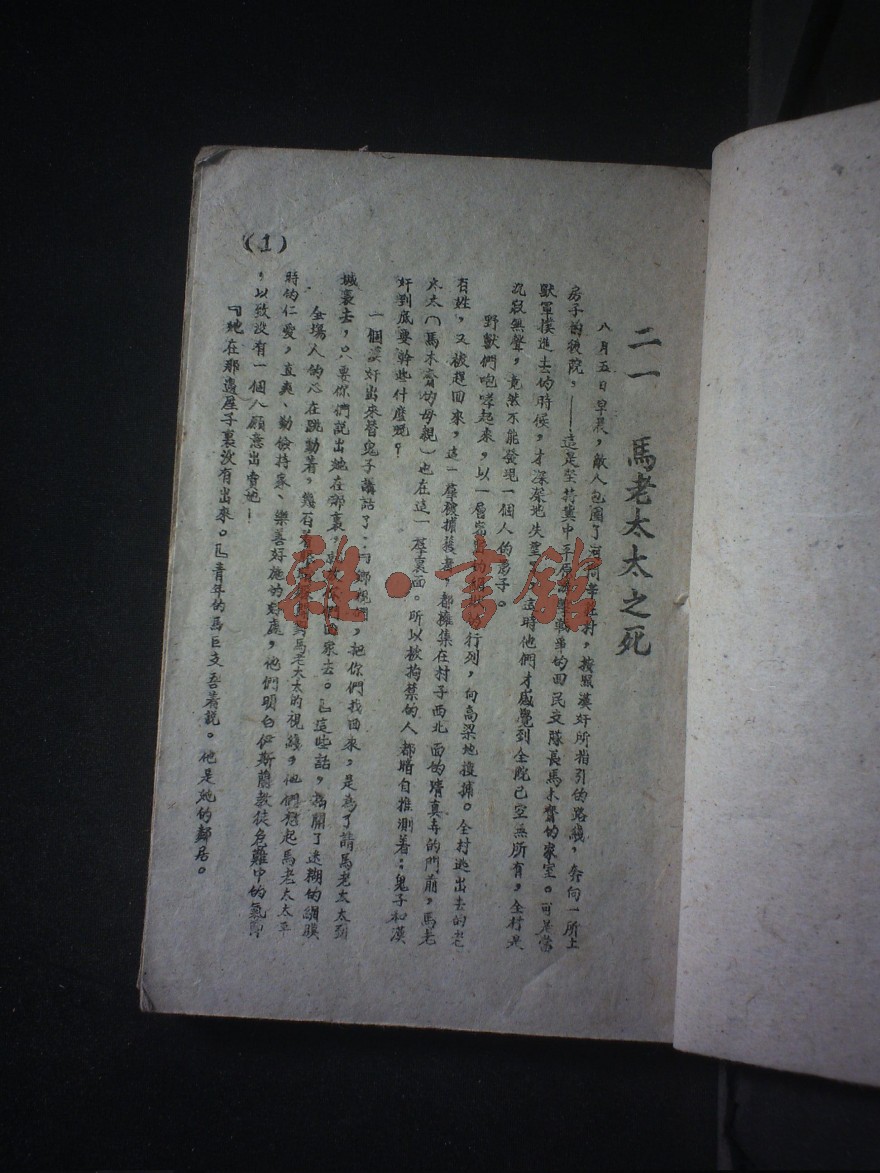 二一 馬老太太之死
八月五日早晨,敵人包圍了河間 村,按照漢奸所指引的路綫,奔向一所土
房子的後院,——這是堅持冀中平原 的回民支隊長馬木齋的家室。可是當
獸軍撲進去的時候,才深深地失望 這時他們才感覺到全院已空無所有,全村是
沉寂無聲,竟然不能發現一個人的影子。
野獸們咆哮起來,以一層 行列,向高梁地搜捕。全村逃出去的老
百姓,又被趕回來,這一羣被擄獲者,都擁集在村子西北面的清真寺的門前,馬老
太太(馬木齋的母親)也在這一羣裏面。所以被拘禁的人都暗自推測着:鬼子和漢
奸到底要幹些什麼呢?
一個漢奸出來替鬼子講話了:『鄉親們,把你們找回來,是為了請馬老太太到
城裏去,只要你們說出她在那裏, 你們回家去。』這些話,揭開了迷糊的網膜
全場人的心在跳動着,幾百 馬老太太的視綫,他們想起馬老太太平
時的仁愛,直爽、勤儉持家、樂善好施的好處,他們明白伊斯蘭教徒危難中的氣節
,以致沒有一個人願意出賣她!
『她在那邊屋子裏沒有出來。』青年的馬臣支吾着說。他是她的鄰居。
(1)
雜·書館